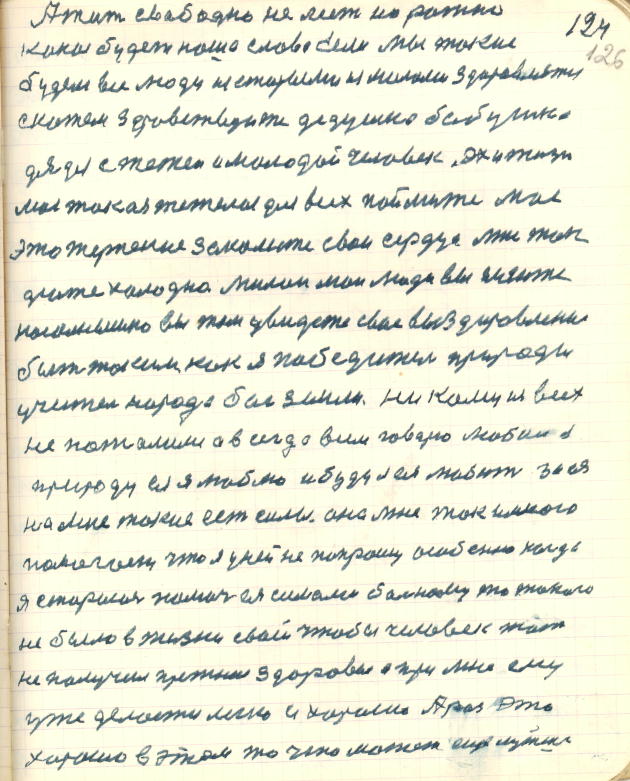 А жит свабодно не лест но ратно
124
какое будет наша слова если мы такие
126
будем все люди и старыми и миломи здаровляти
скажем здравствуйте дедушка бабушка
дядя с тетей и молодой человек, эх и жизн
моя такая тежолая для всех поймите мое
это терпение закалите свои сердца мне так
же холодно милои мои люди вы гляньте
на солнышко вы там увидете свае выздаровление
быт таким как я победител природы
учител народа бог земли. ни кому из всех
не пожалили а всегда всем говарю любой я
природу ея я люблю и буду ея любит за ея
на мне такие ест силы. она мне так много
помогает что я у ней не попрошу особенно когда
я стараюс помоч ея силами больному то такого
не было в жизни своей чтобы человек тот
не получил прежние здоровье а при мне ему
уже делается легко и хорошо А раз это
хорошо в этом то что может еще лутше